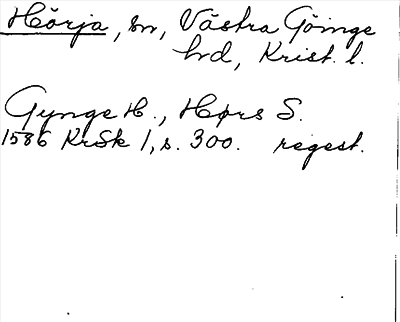 Hörja, sn, Västra Göinge
hd, Krist. l.
Gynge H., Hørs S.
1586 KrSk 1, s. 300. regest.